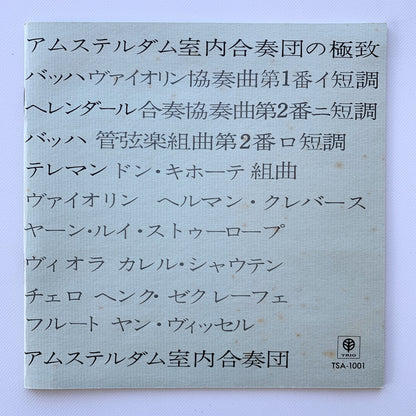 アムステルダム室内合奏団の極致
バッハヴァイオリン協奏曲第1番イ短調
ヘレンダール合奏協奏曲第2番ニ短調
バッハ 管弦楽組曲第2番ロ短調
テレマンドン・キホーテ組曲
ヴァイオリン ヘルマン・クレバース
ヤーン・ルイ・ストゥーロープ
ヴィオラ カレル・シャウテン
チェロ ヘンク・ゼクレーフェ
フルート ヤン・ヴィッセル
アムステルダム室内合奏団
TRIO
TSA-1001